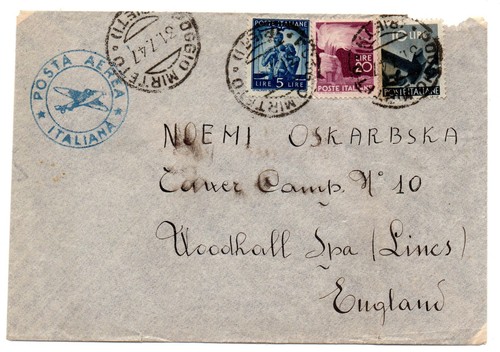 POGGIO MIRTETO (RIETI)
31.7.47
POSTA AEREA
ITALIANA
LIRE 5 LIRE
POSTE ITALIANE
LIRE 20
POSTE ITALIANE
10 LIRE
POSTE ITALIANE
NOEMI OSKARBSKA
Camp. N° 10
Woodhall Spa (Lincs)
England